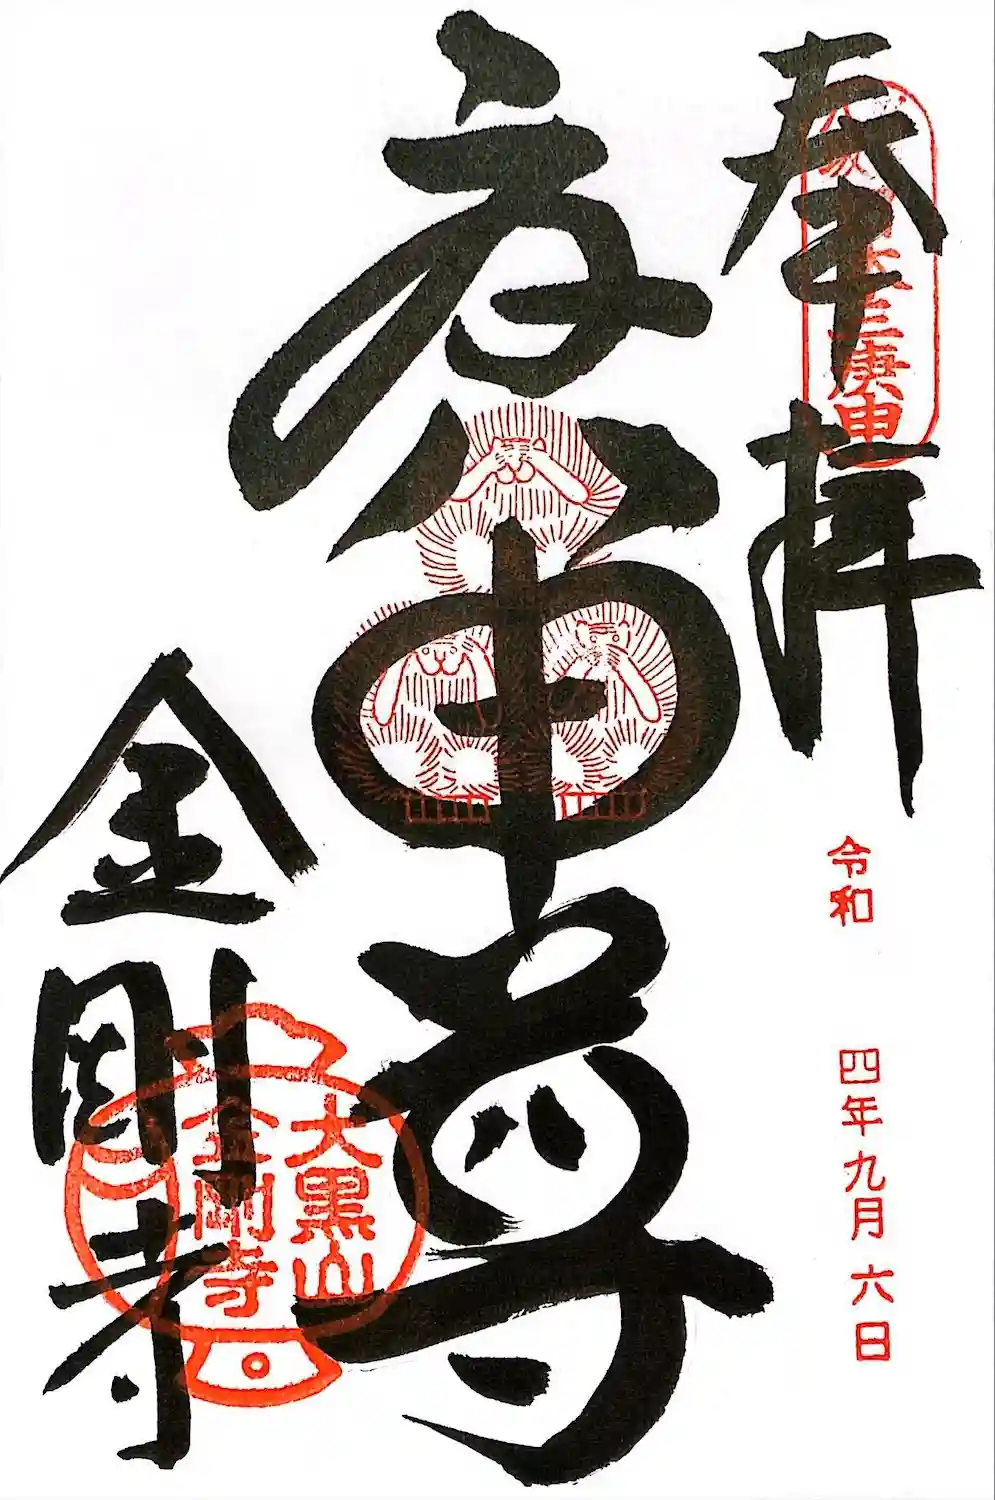 奉拝
三庚申
令和 四年九月六日
庚申尊
金剛寺
大黒山
金剛寺